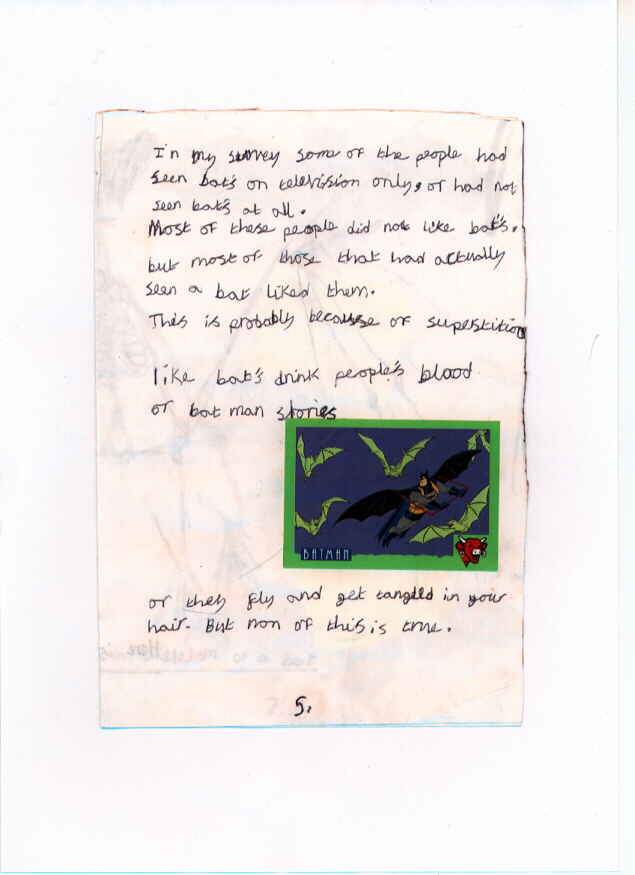 In my survey some of the people had
seen bat's on television only, or had not
seen bat's at all.
Most of these people did not like bat's.
but most of those that had actually
seen a bat liked them.
This is probably because of superstition
like bat's drink people's blood
or bat man stories
BATMAN
or they fly and get tangled in your
hair. But non of this is true.
5.